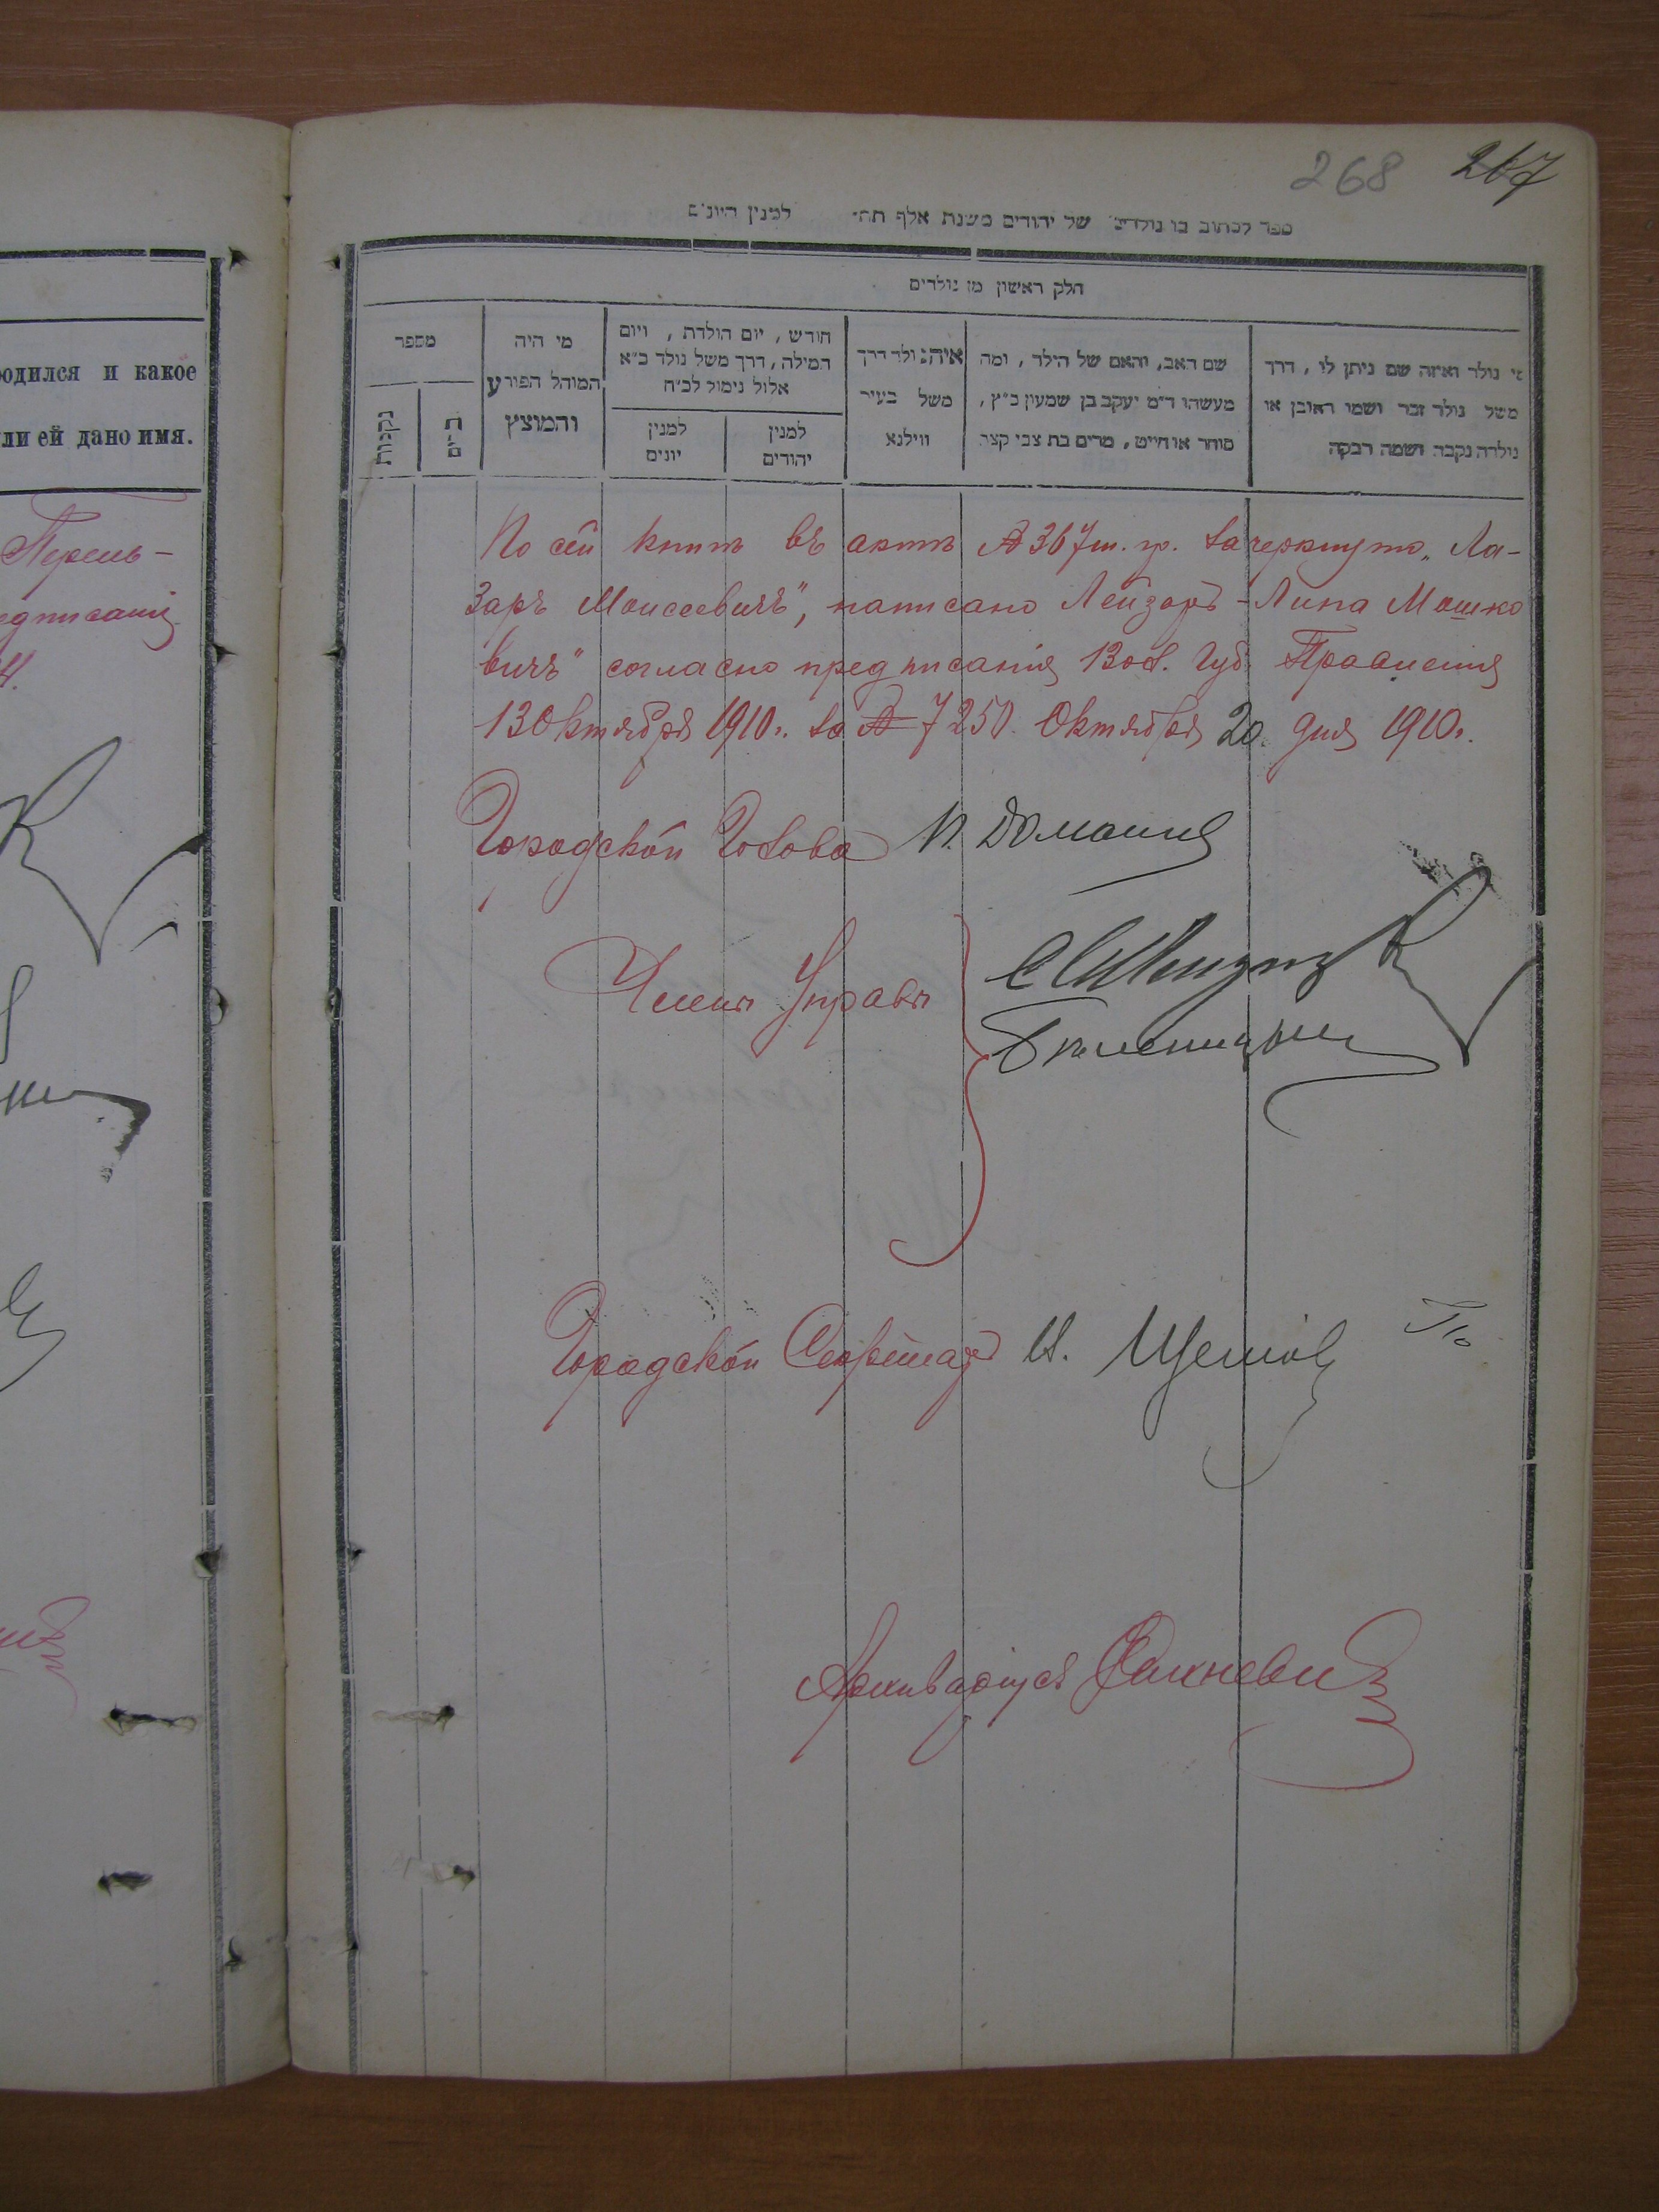 268 267
ספר לכתוב בו נולדים של יהודים משנת אלף תת־ למנין היונים
חלק ראשון מן נולדים
מי נולד ואיזה שם ניתן לו, דרך
משל נולד זכר ושמו ראובן או
נולדה נקבה ושמה רבקה
שם האב, והאם של הילד, ומה
מעשהו ד״מ יעקב בן שמעון כ״ץ,
סוחר או חייט, מרים בת צבי קצב
איה נולד דרך
משל בעיר
ווילנא
חודש, יום הולדת, ויום
המילה, דרך משל נולד כ״א
אלול נימול לכ״ח
למנין
יהודים
למנין
יונים
מי היה
המוהל הפורע
והמוצץ
מספר
זכרים
נקבות
одился и какое
ли ей дано имя.
Перель-
едписанія
По сей книгѣ въ актѣ № 367 м. гр. зачеркнуто „Ла-
заръ Моисеевичъ", написано Лейзоръ-Липа Мошко
вичъ" согласно предписанія Вол. Губ. Правленія
13 Октября 1910 г. за № 7250. Октября 20 дня 1910 г.
Городской Голова
Члены Управы
Городской Секретарь И.
Архиваріусъ